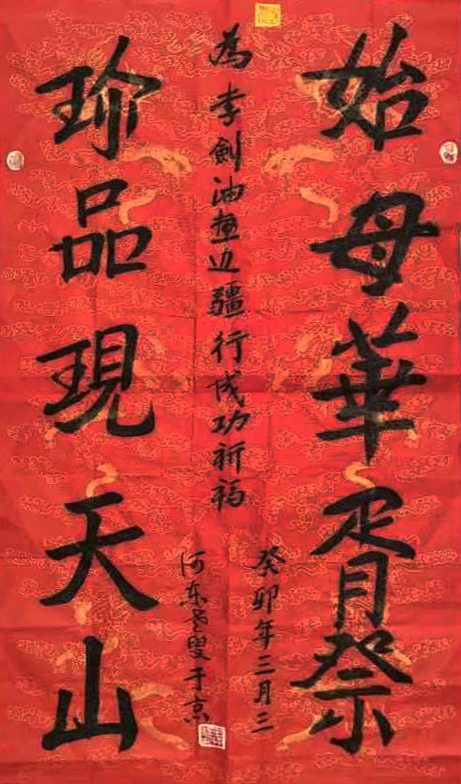 始母華胥祭
癸卯年三月三
為李劍油畫边疆行成功祈福
河东老叟于京
珍品現天山